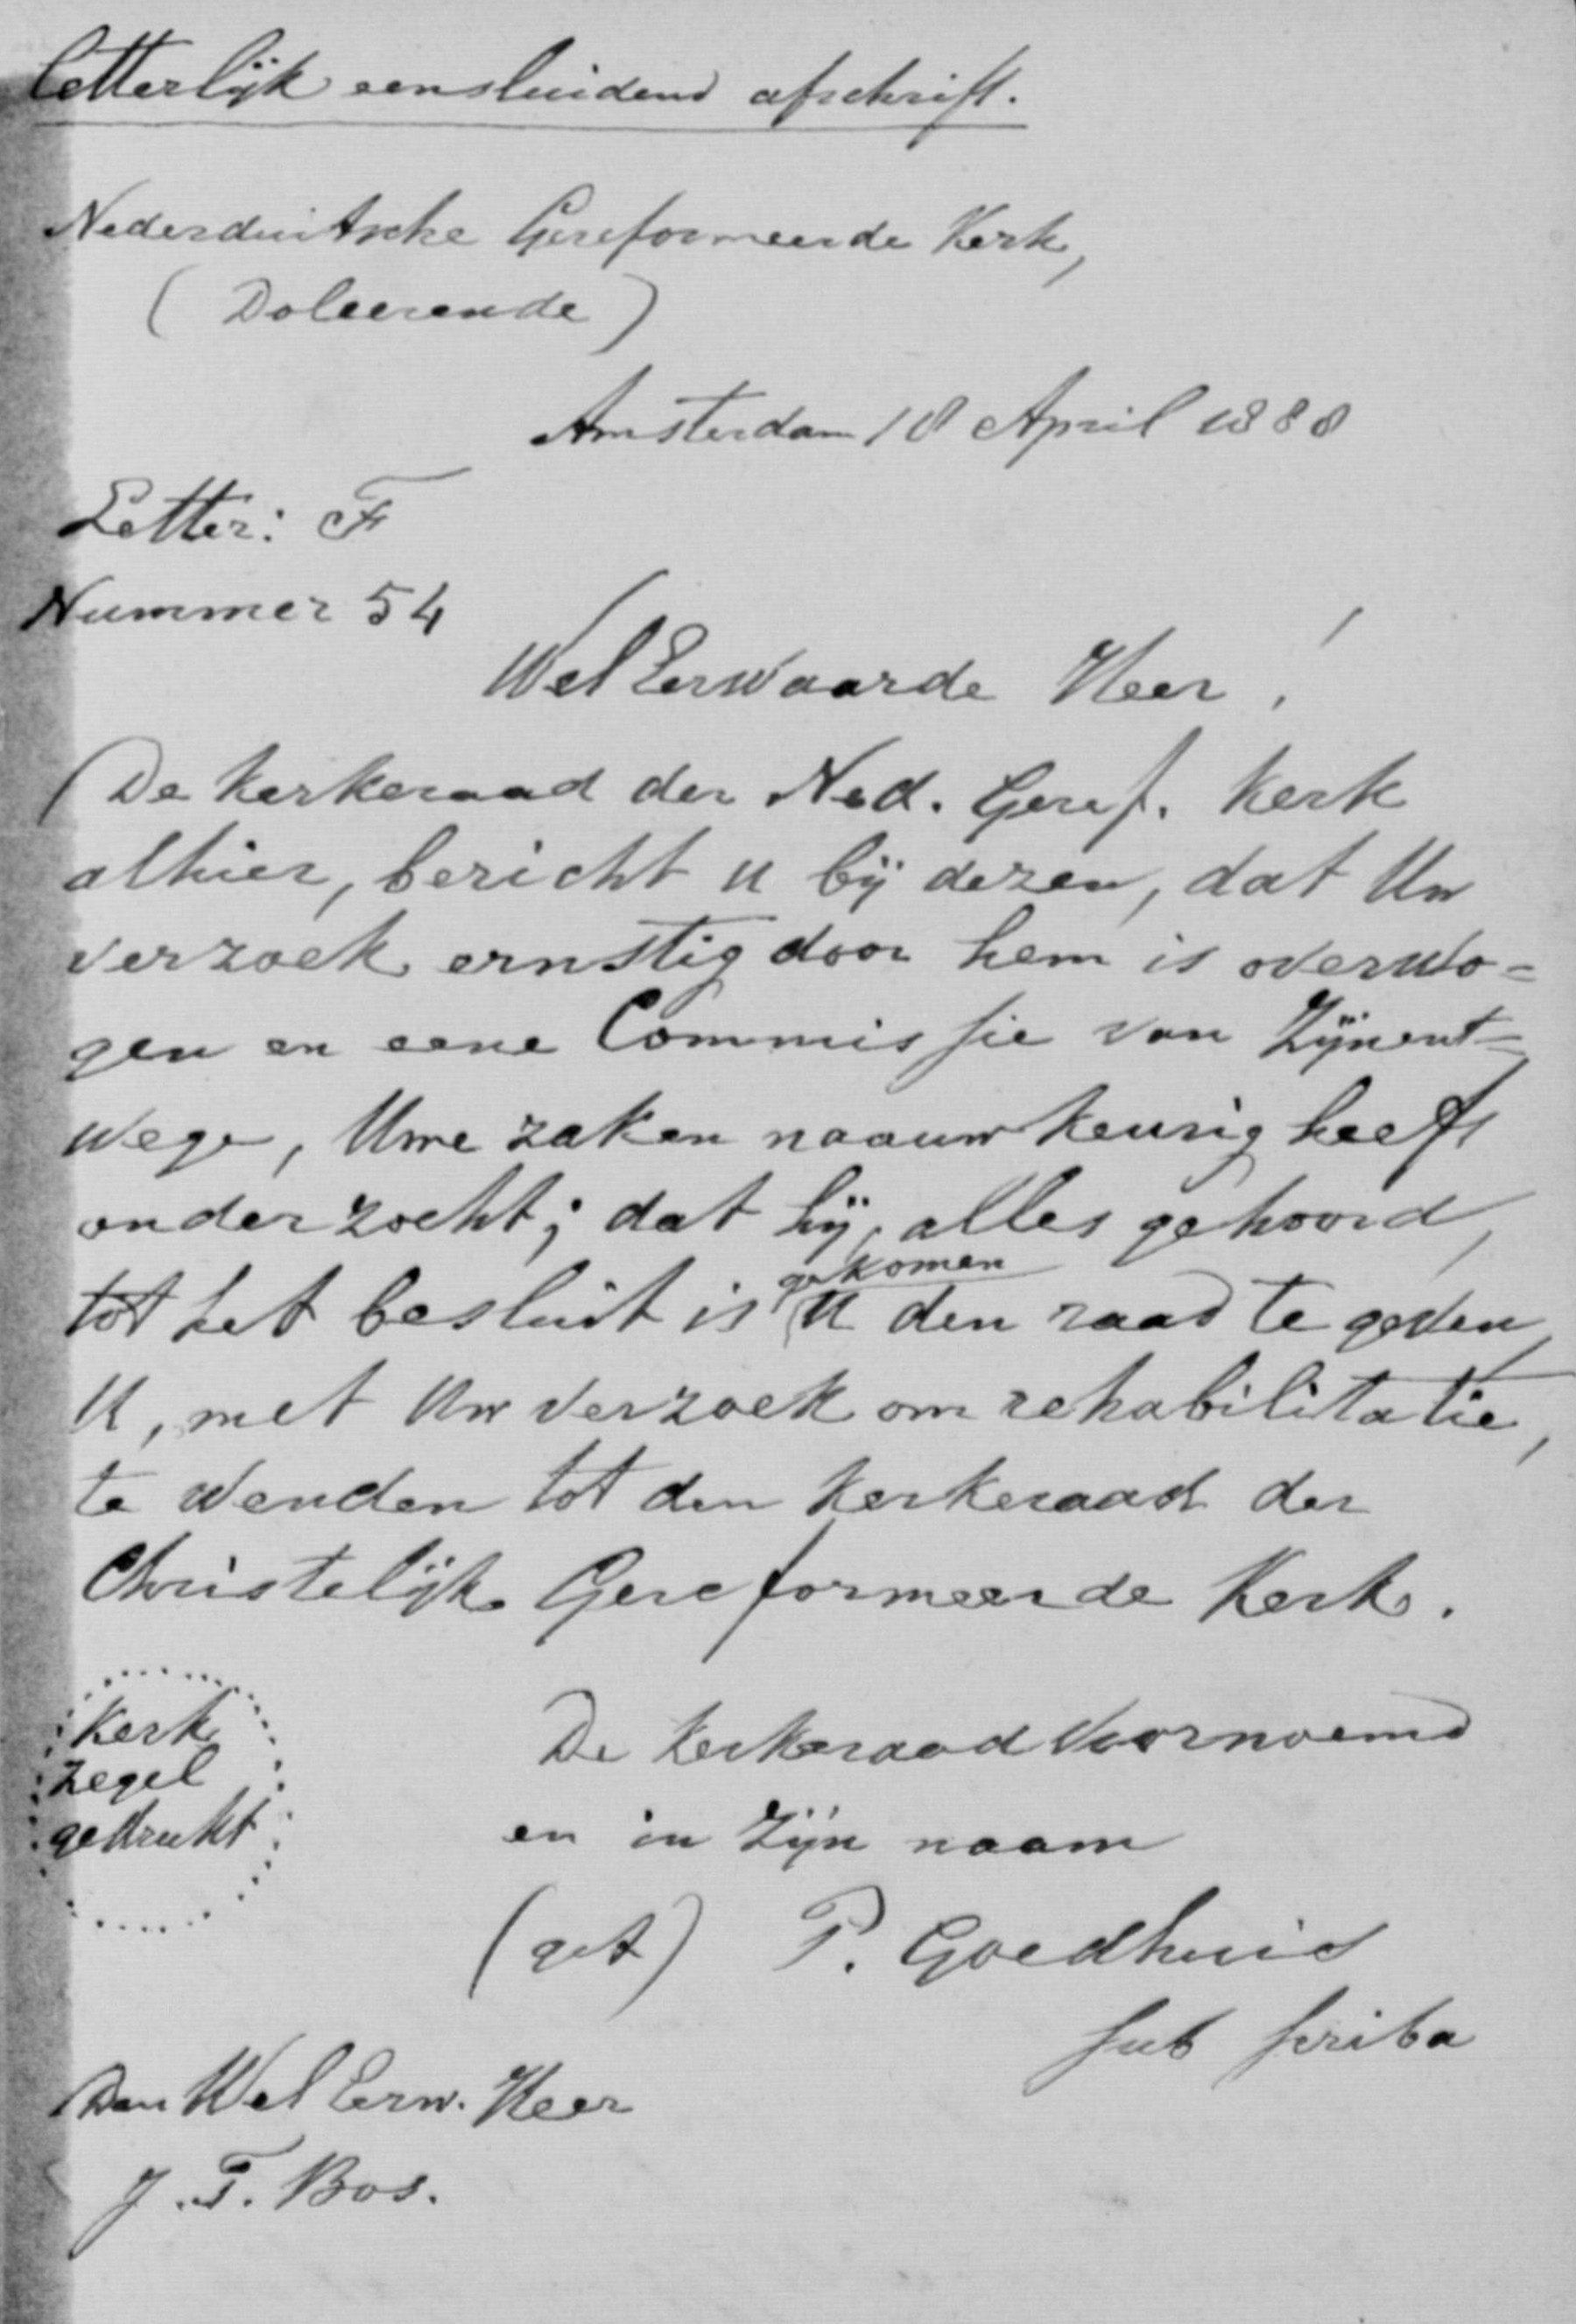 Letterlijk eensluidend afschrift.
Nederduitsche Gereformeerde Kerk,
(Doleerende)
Amsterdam 18 April 1888
Letter: F
Nummer 54
WelEerwaarde Heer!
De Kerkeraad der Ned. Geref. Kerk
alhier, bericht u bij dezen, dat Uw
verzoek ernstig door hem is overwo=
gen en eene Commissie van Zijnent=
wege, Uwe zaken naauwkeurig heeft
onderzocht; dat hij, alles gehoord,
gekomen
tot het besluit is U den raad te geven,
U, met Uw verzoek om rehabilitatie,
te wenden tot den Kerkeraad der
Christelijk Gereformeerde Kerk.
Kerk
zegel
gedrukt
De Kerkeraad voornoemd
en in Zijn naam
(get) P. Goedhuis
sub scriba
Den WelEerw. Heer
J. F. Bos.